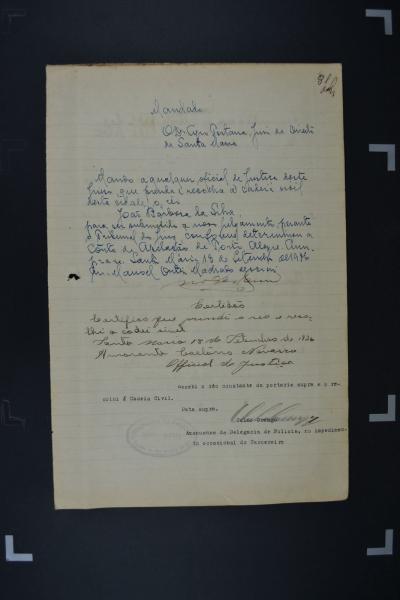 Mandado
O Dr. Cyro Pestana, Juiz de Direito
de Santa Maria
Mando a qualquer oficial de Justiça deste
Juizo que prenda e recolha á cadeia civil
desta cidade, o réu
João Barbosa da Silva
para ser submetido a novo julgamento perante
o Tribunal do Juri conforme determinou a
Côrte de Apelação de Porto Alegre. Cum-
pra-se. Santa Maria 15 de Setembro de 1936
Eu Manoel escrivão
Certidão
Certifico que prendi o reo e reco-
lhi a cadei sivel
Santo Maria 18 de Setembro de 1936
Amarante Caetano Navarro
Official de Justiça
Recebi o réo constante da portaria supra e o re-
colhi á Cadeia Civil.
Data supra.
da Delegacia de Policia, no impedimen-
to occasional do Carcereiro